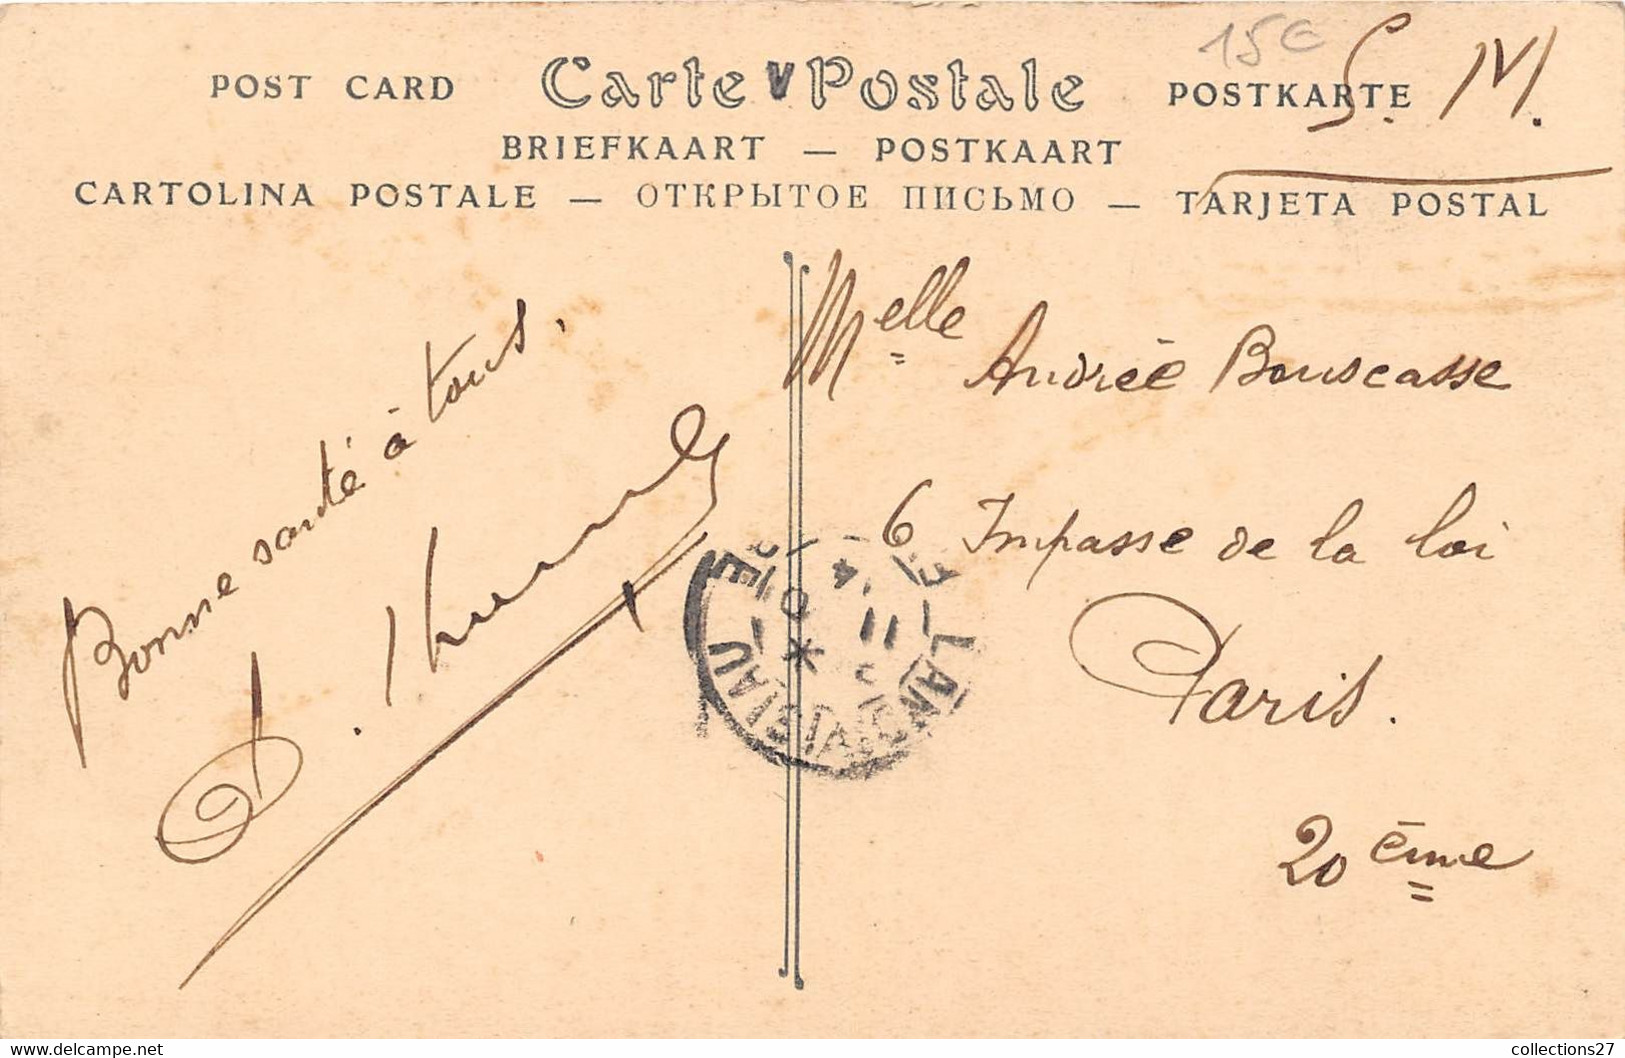 15€
S. M.
POST CARD Carte Postale POSTKARTE
BRIEFKAART — POSTKAART
CARTOLINA POSTALE — ОТКРЫТОЕ ПИСЬМО — TARJETA POSTAL
Bonne santé à tous.
Melle Andrée Bouscasse
6 Impasse de la Loi
Paris.
20ème
collections27